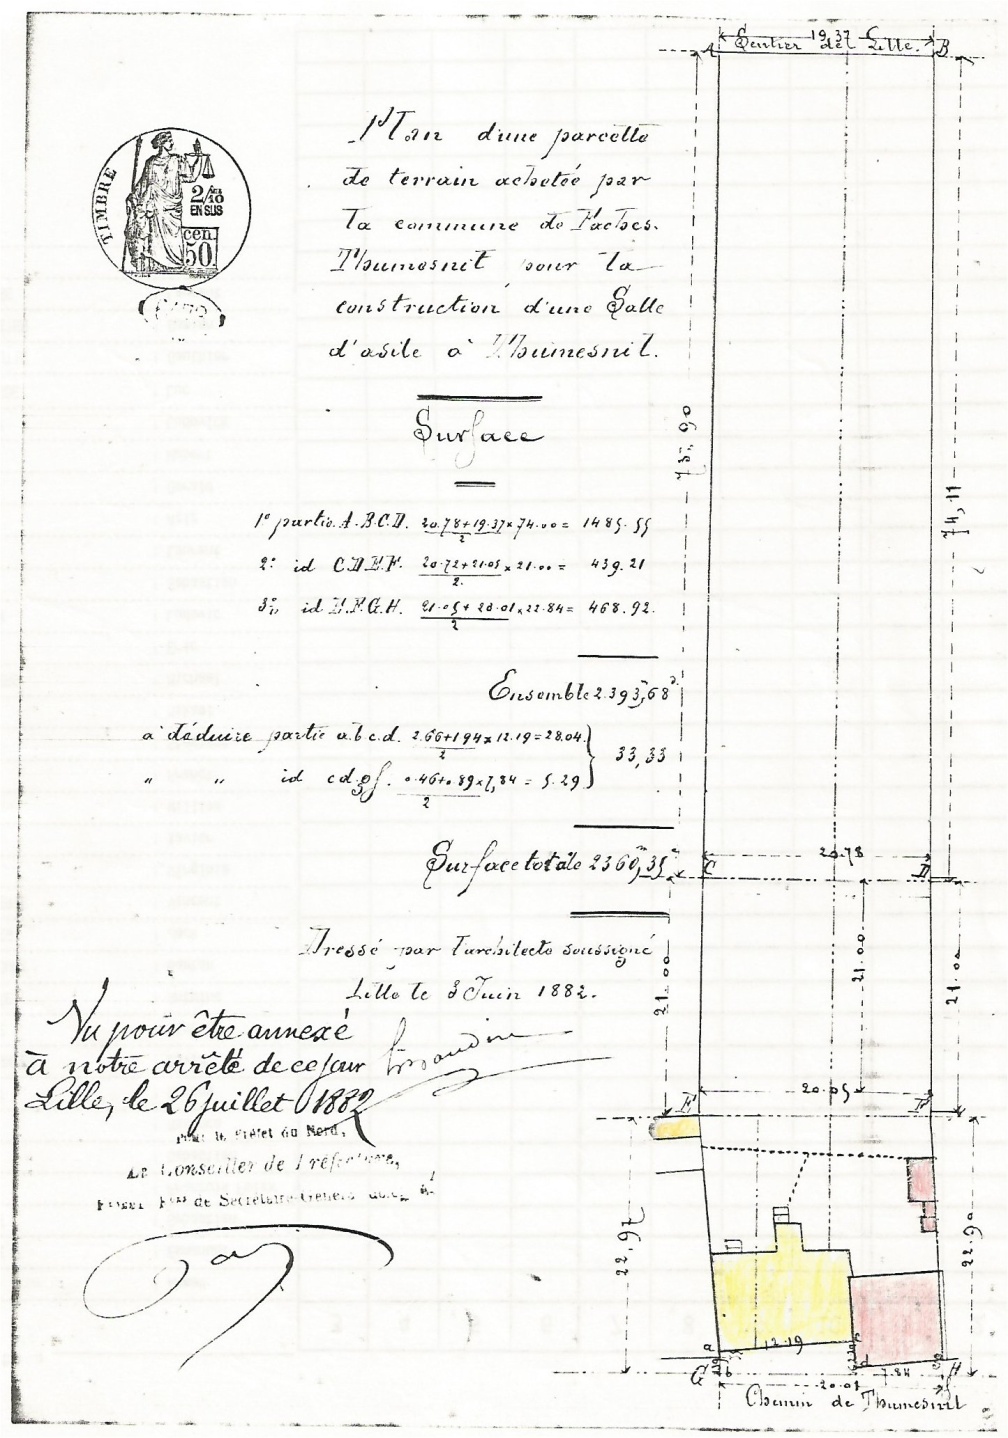 Sentier de Lille.
19.37
A
B
TIMBRE
2/10
EN SUS
cen.
50
Plan d'une parcelle
de terrain achetée par
la commune de Faches.
Thumesnil pour la
construction d'une Salle
d'asile à Thumesnil.
75,90
74,11
Surface
1° partie A.B.C.D. 20.78+19.37/2 x 74.00 = 1485.55
2° id C.D.E.F. 20.72+21.05/2 x 21.00 = 439.21
3° id E.F.G.H. 21.05+20.01/2 x 22.84 = 468.92.
Ensemble 2.393,68
à déduire partie a.b.c.d. 2.66+1.94/2 x 12.19 = 28.04.
33,33
" " id c d g f. 0.46+0.89/2 x 7,84 = 5.29
Surface totale 2360,35
C
20.78
D
Dressé par l'architecte soussigné
Lille le 3 Juin 1882.
21.00
21.00
21.00
Vu pour être annexé
à notre arrêté de ce jour
Lille, le 26 juillet 1882
Pour le Préfet du Nord,
Le Conseiller de Préfecture,
de Secrétaire Général
E
20.05
F
22,97
22.90
a
12.19
c
G
b
d
7.84
H
20.01
Chemin de Thumesnil